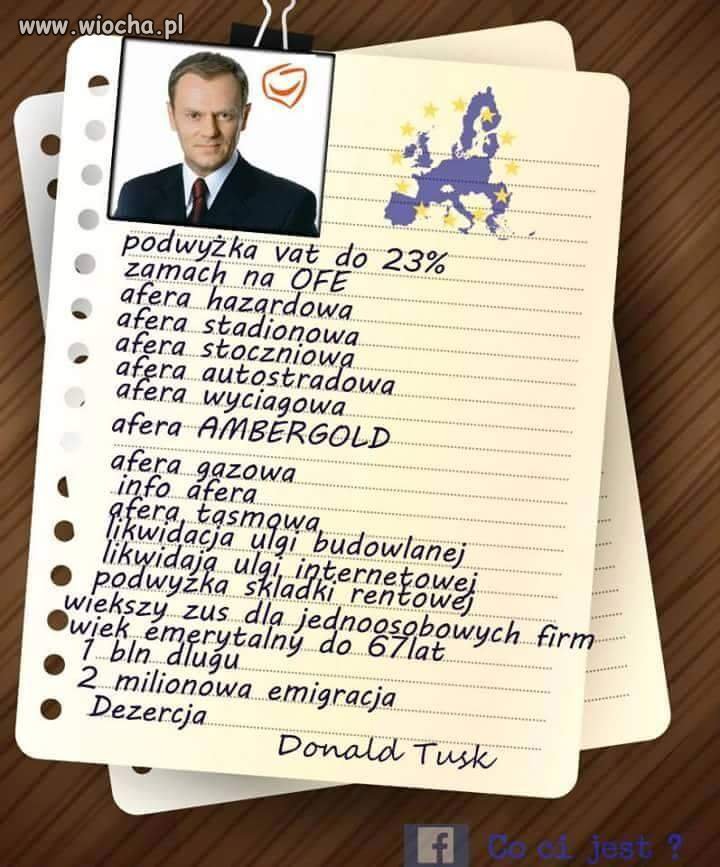 www.wiocha.pl
podwyżka vat do 23%
zamach na OFE
afera hazardowa
afera stadionowa
afera stoczniowa
afera autostradowa
afera wyciagowa
afera AMBERGOLD
afera gazowa
info afera
afera taśmowa
likwidacja ulgi budowlanej
likwidaja ulgi internetowej
podwyżka składki rentowej
wiekszy zus dla jednoosobowych firm
wiek emerytalny do 67lat
1 bln dlugu
2 milionowa emigracja
Dezercja
Donald Tusk
f Co ci jest ?